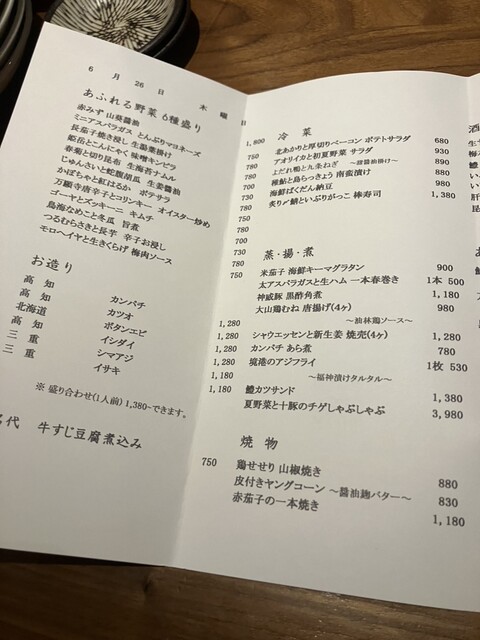 6月26日 木曜日
あふれる野菜 6種盛り 1,800
赤みず 山葵醤油 750
ミニアスパラガス とんぶりマヨネーズ 780
長茄子焼き浸し 生姜葉掛け 750
姫岳とこんにゃく 味噌キンピラ 700
春菊と切り昆布 生海苔ナムル 750
じゅんさいと蛇腹胡瓜 生姜醤油 780
かぼちゃと紅はるか ポテサラ 730
万願寺唐辛子とコリンキー オイスター炒め 780
ゴーヤとズッキーニ キムチ 700
鳥海なめこと冬瓜 旨煮 730
つるむらさきと長芋 辛子お浸し 780
モロヘイヤと生きくらげ 梅肉ソース 750
お造り
高知 カンパチ 1,280
高知 カツオ 1,280
北海道 ボタンエビ 1,380
高知 イシダイ 1,280
三重 シマアジ 1,180
三重 イサキ 1,180
※ 盛り合わせ(1人前) 1,380~できます。
名代 牛すじ豆腐煮込み 750
冷菜
北あかりと厚切りベーコン ポテトサラダ 680
アオリイカと初夏野菜 サラダ 930
上だれ鴨と九条ねぎ ~甜醤油掛け~ 890
稚鮎と島らっきょう 南蛮漬け 980
海鮮ばくだん納豆 980
炙り〆鯖といぶりがっこ 棒寿司 1,380
蒸・揚・煮
米茄子 海鮮キーマグラタン 900
太アスパラガスと生ハム 一本春巻き 1本 500
神威豚 黒酢角煮 1,180
大山鶏むね 唐揚げ(4ヶ) 980
~油林鶏ソース~
シャウエッセンと新生姜 焼売(4ヶ) 1,280
カンパチ あら煮 780
境港のアジフライ 1枚 530
~福神漬けタルタル~
鱧カツサンド 1,380
夏野菜と十豚のチゲしゃぶしゃぶ 3,980
焼物
鶏せせり 山椒焼き 880
皮付きヤングコーン ~醤油麹バター~ 830
赤茄子の一本焼き 1,180